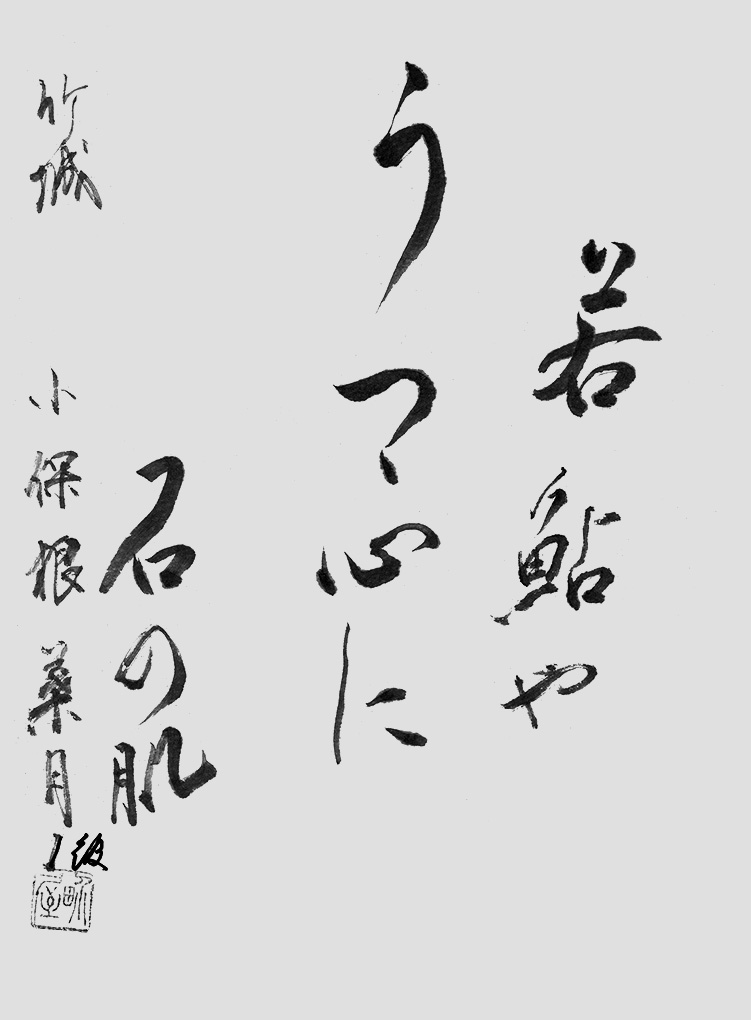 若鮎や
うつゝ心に
石の肌
竹城 小保根葉月
1級